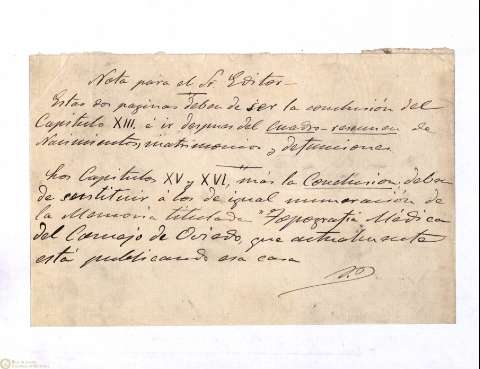 Nota para el Sr Editor—
Estas dos paginas deben de ser la conclusión del
Capitulo XIII, é ir despues del cuadro-resumen de
Nacimientos, matrimonios y defunciones.
Los Capitulos XV y XVI, más la Conclusion, deben
de sustituir á los de igual numeración de
la Memoria titulada "Topografía Médica
del Concejo de Oviedo, que actualmente
está publicando esa casa